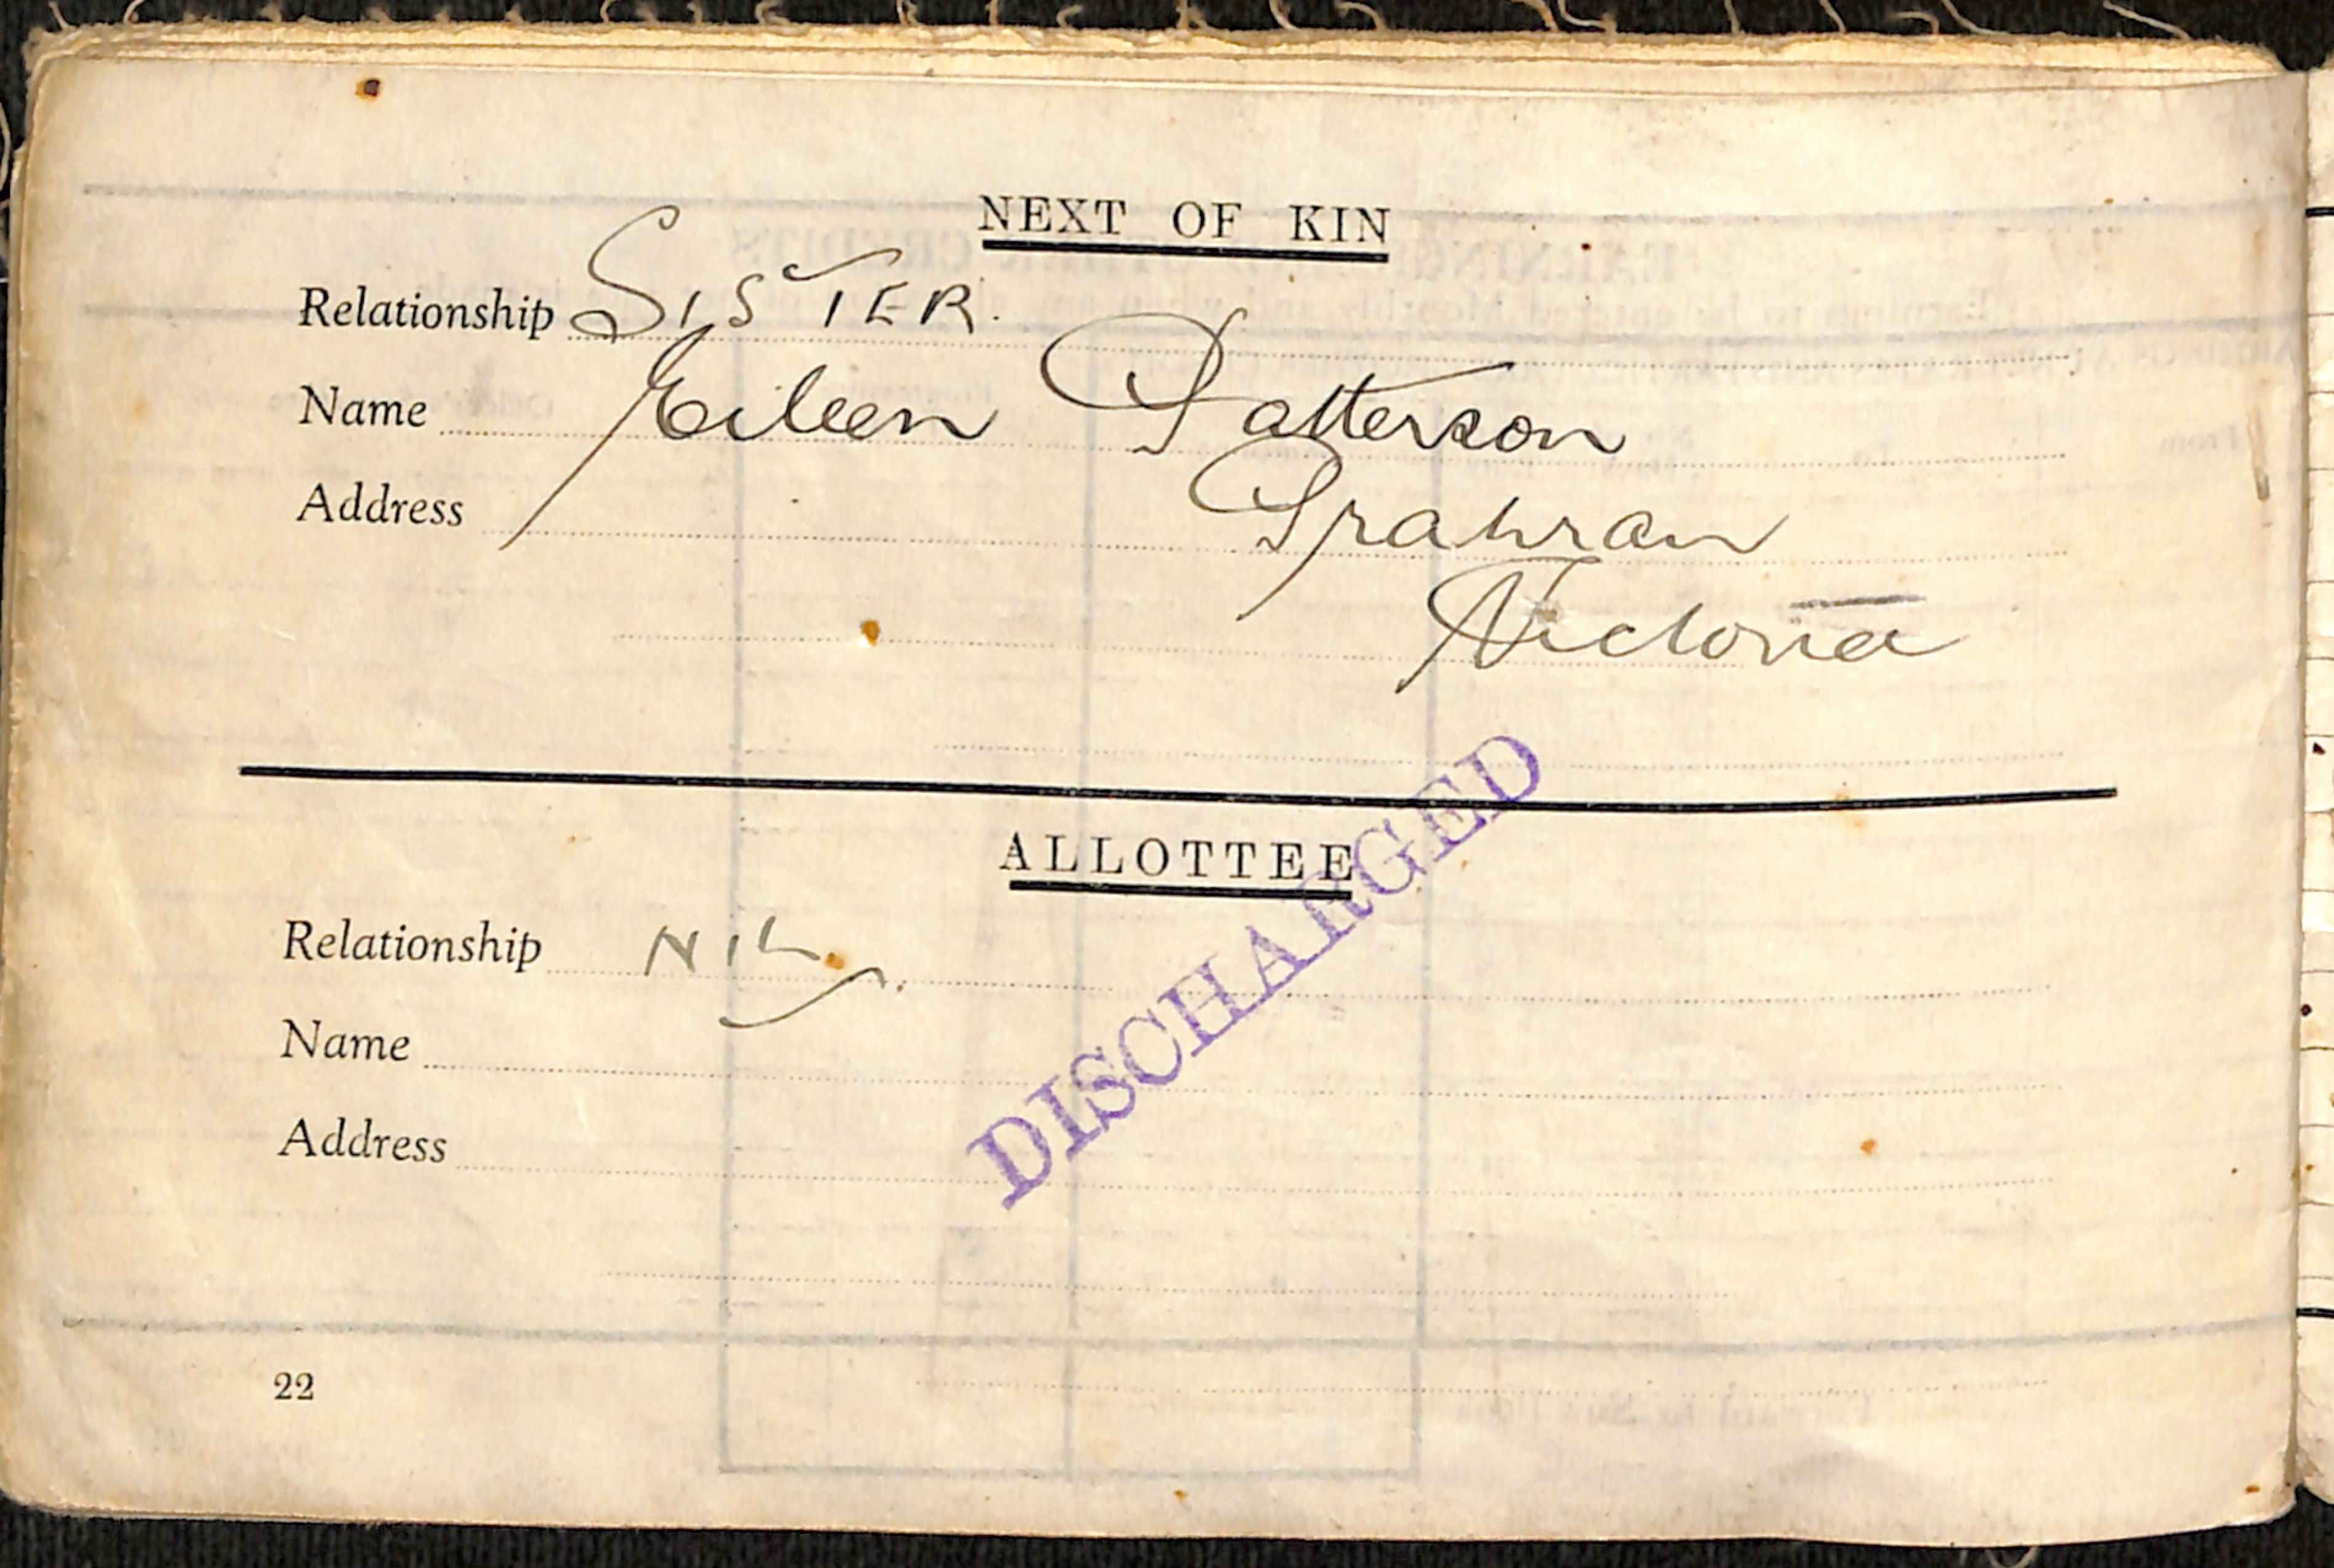 NEXT OF KIN
Relationship SISTER.
Name Eileen Patterson
Address Prahran
Victoria
ALLOTTEE
DISCHARGED
Relationship NIL
Name
Address
22